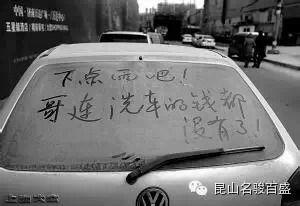 下点雨吧！
哥连洗车的钱都
没有了！
昆山名骏百盛